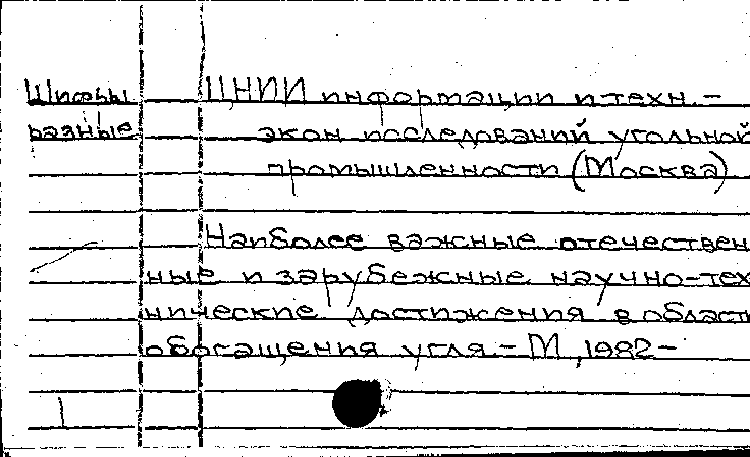 Шифры ЦНИИ информации и техн.-
разные экон исследований угольной
промышленности (Москва)
Наиболее важные отечествен
ные и зарубежные научно-тех
нические достижения в област
обогащения угля. - М, 1982-